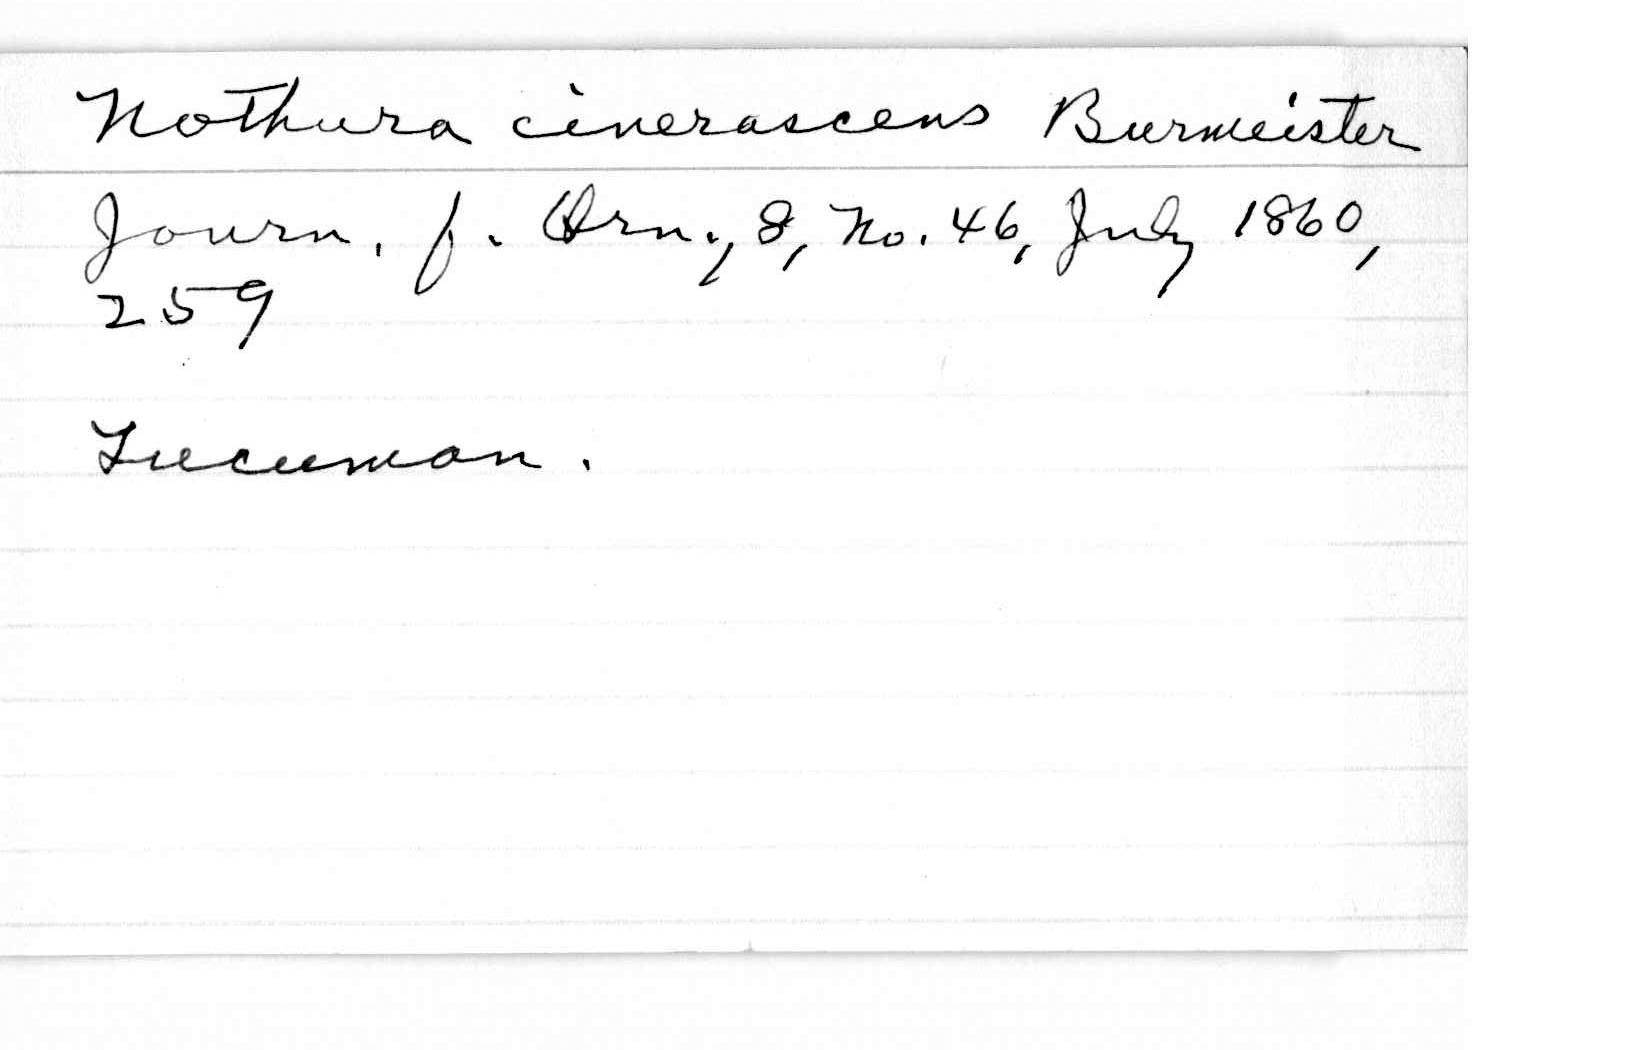 Nothura cinerascens Burmeister
Journ. f. Orn., 8, No. 46, July 1860,
259
Tucuman.